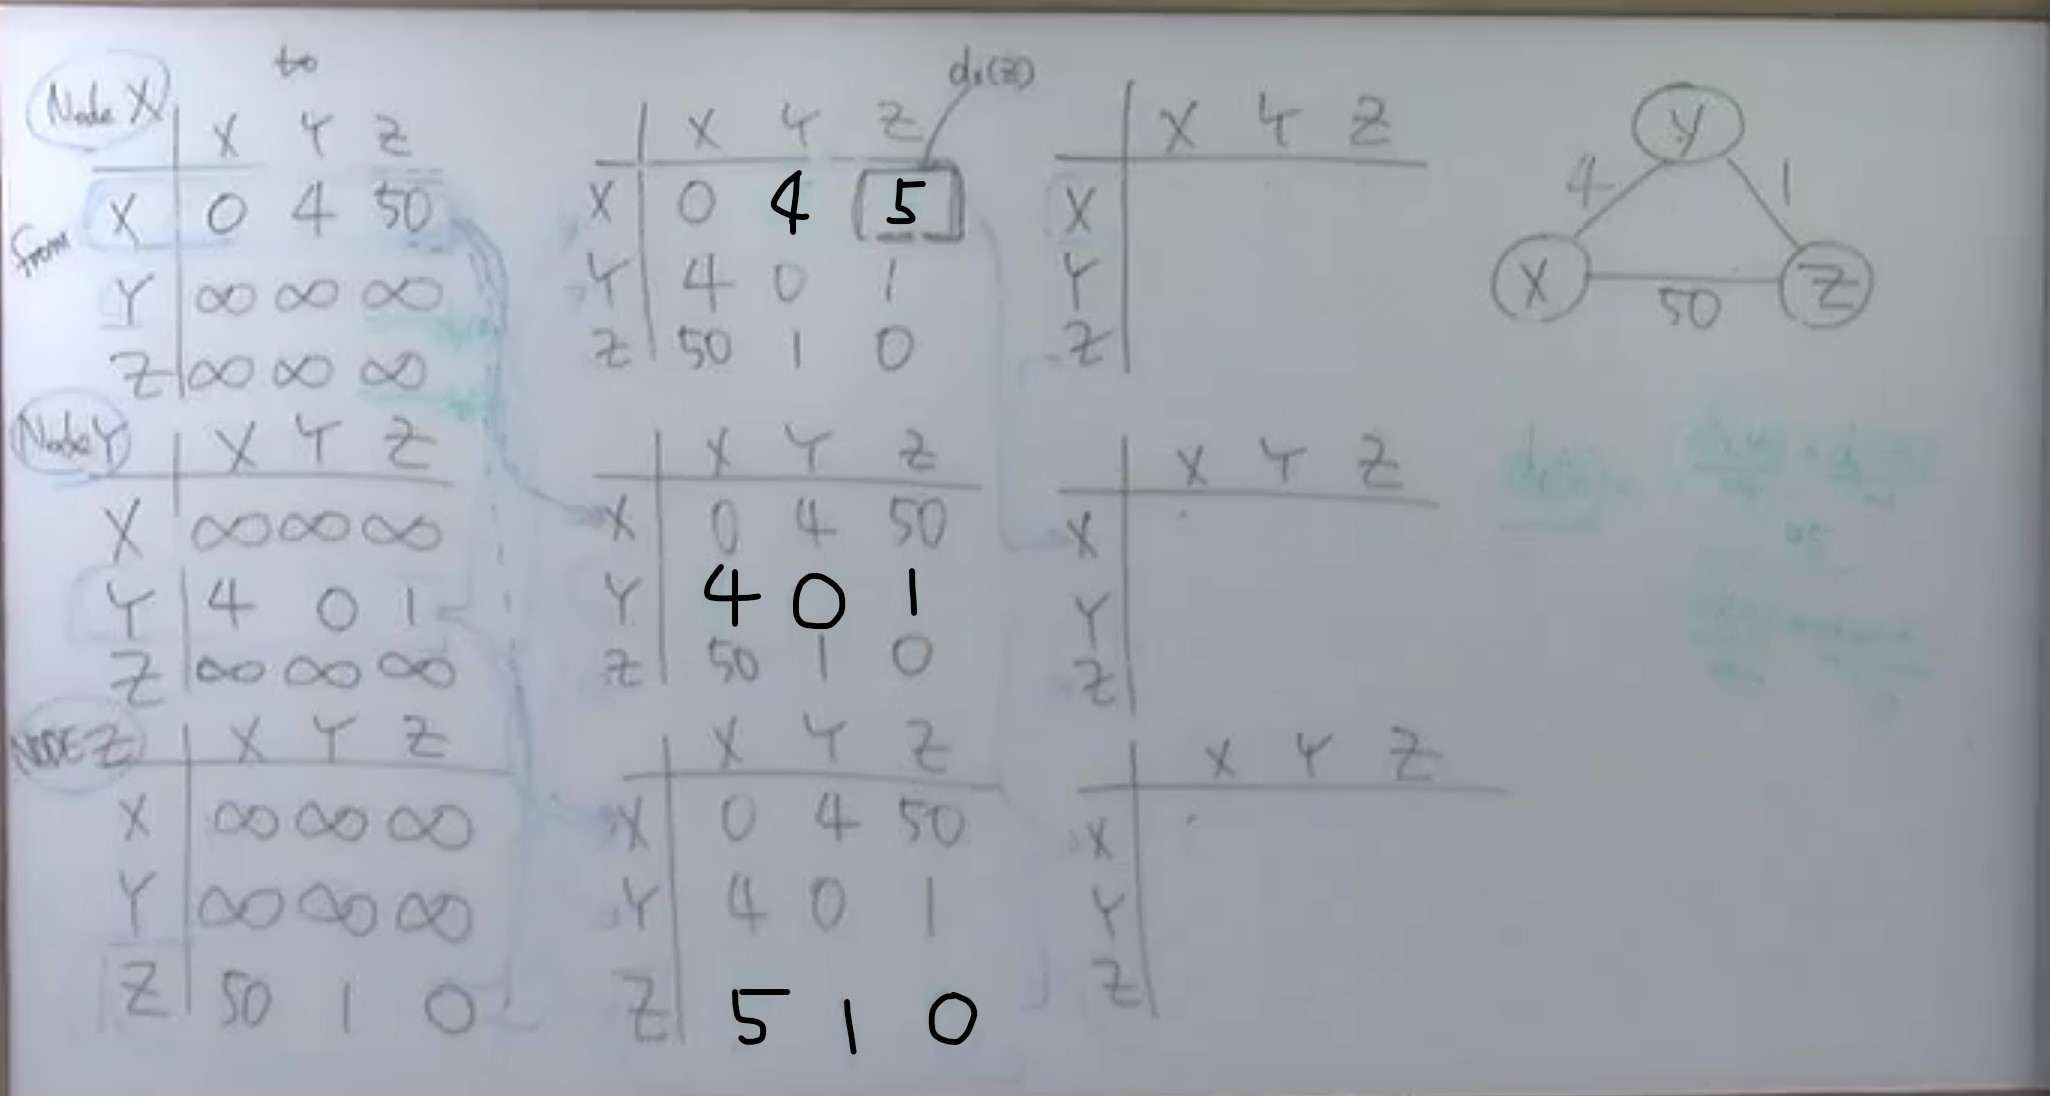 Node X to
X Y Z
from X 0 4 50
Y ∞ ∞ ∞
Z ∞ ∞ ∞
Node Y X Y Z
X ∞ ∞ ∞
Y 4 0 1
Z ∞ ∞ ∞
NODE Z X Y Z
X ∞ ∞ ∞
Y ∞ ∞ ∞
Z 50 1 0
dx(z)
X Y Z
X 0 4 5
Y 4 0 1
Z 50 1 0
X Y Z
X 0 4 50
Y 4 0 1
Z 50 1 0
X Y Z
X 0 4 50
Y 4 0 1
Z 5 1 0
X Y Z
X
Y
Z
X Y Z
X
Y
Z
X Y Z
X
Y
Z
Y
4 1
X Z
50